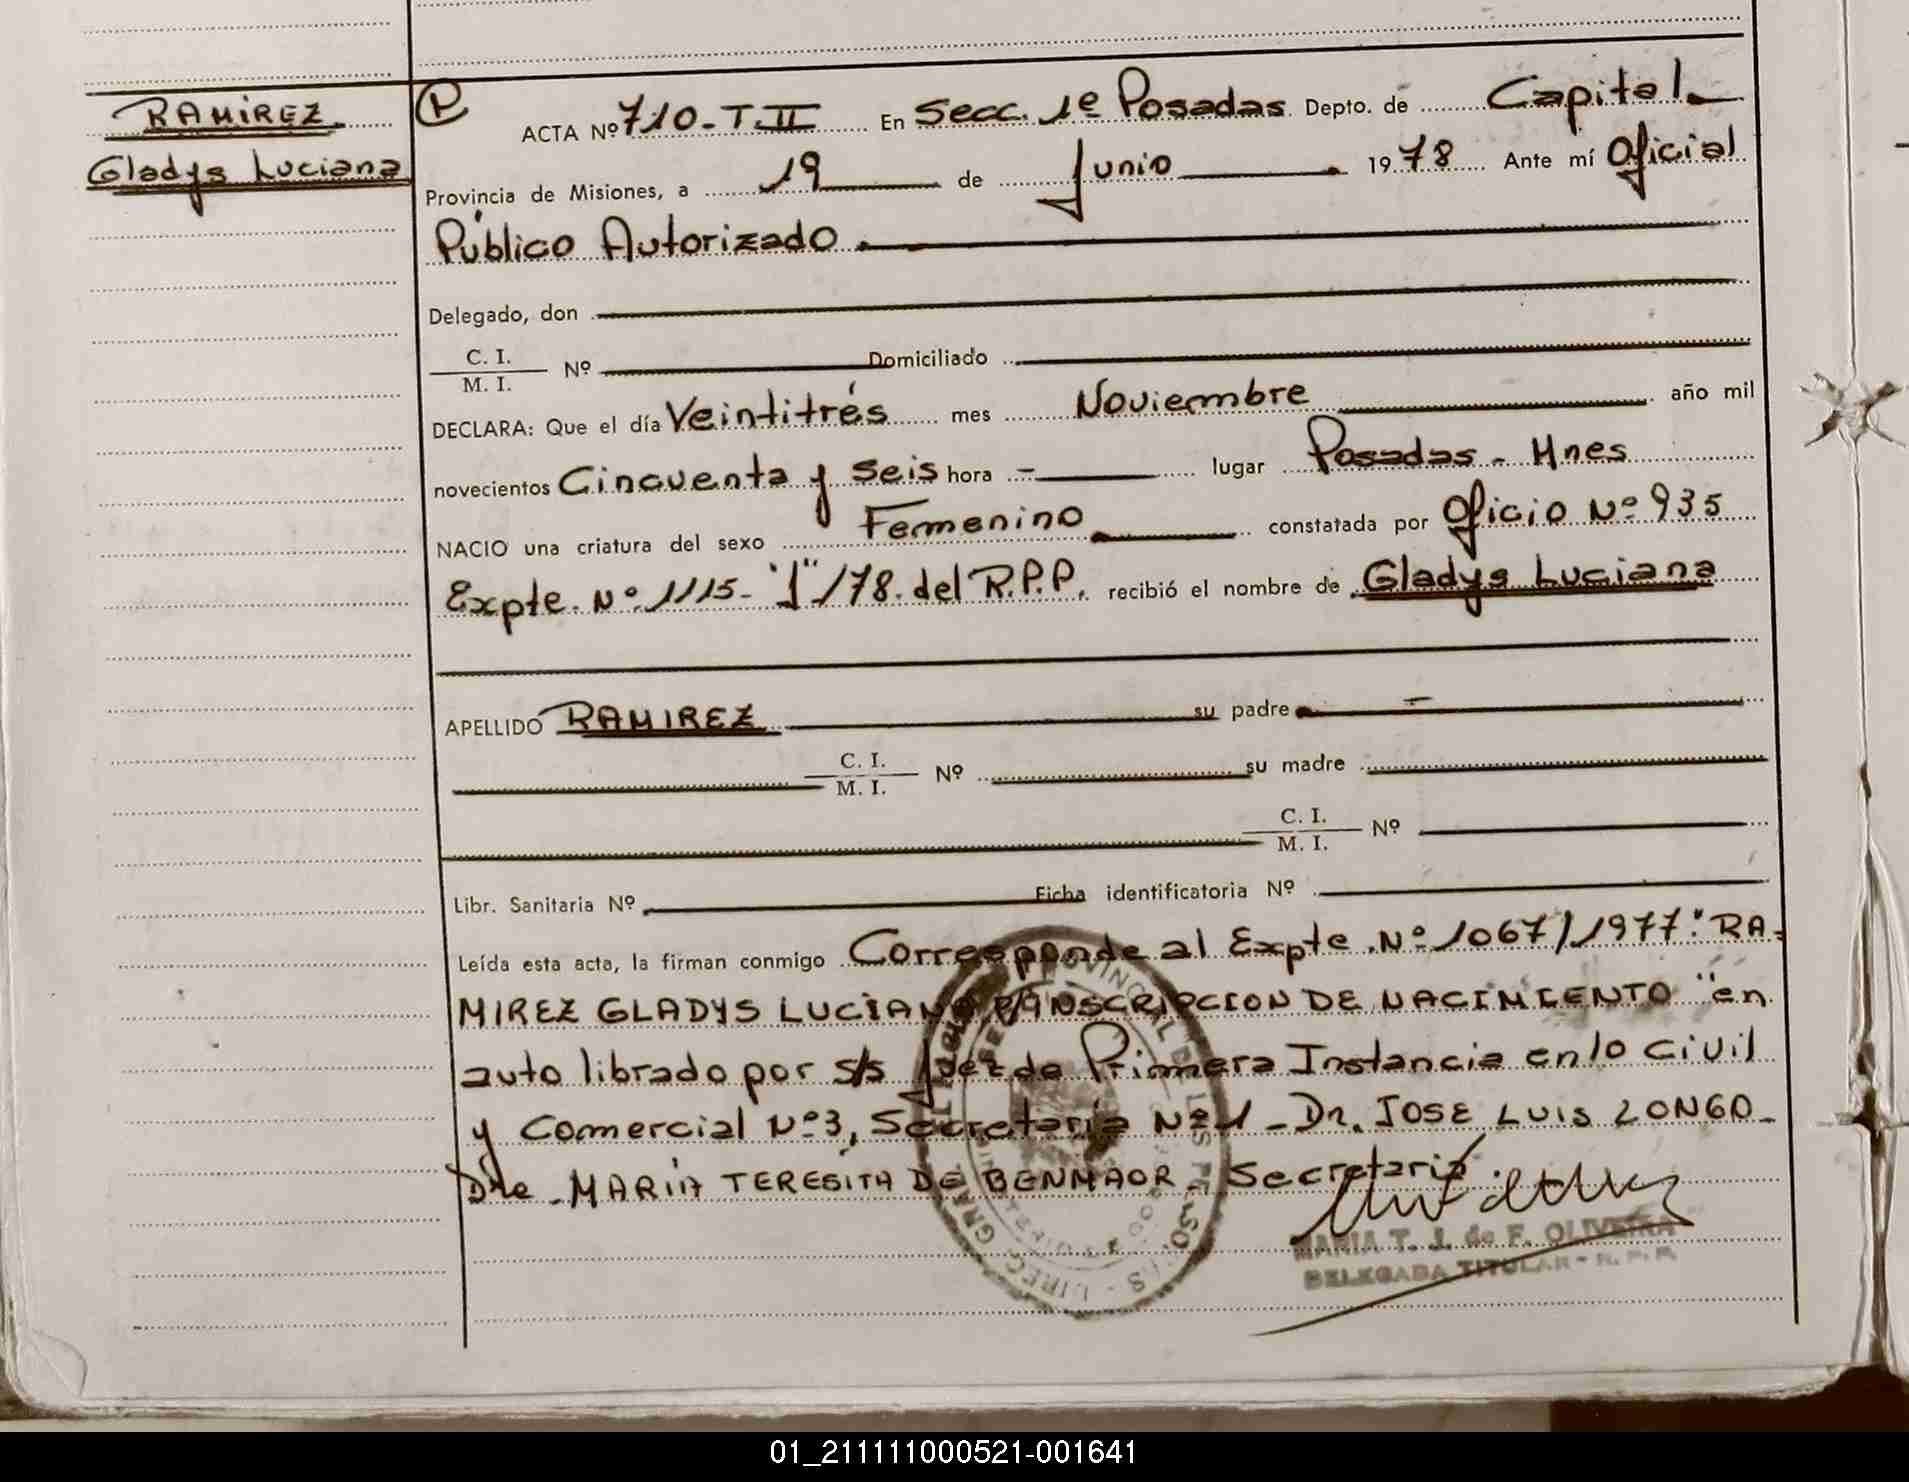 RAMIREZ
Gladys Luciana
P
ACTA Nº 710-T.II En Secc. 1ª Posadas Depto. de Capital
Provincia de Misiones, a 19 de Junio 1978 Ante mí Oficial
Público Autorizado
Delegado, don
C. I.
M. I.
Nº Domiciliado
DECLARA: Que el día Veintitrés mes Noviembre año mil
novecientos Cincuenta y seis hora - lugar Posadas - Mnes
NACIO una criatura del sexo Femenino constatada por Oficio Nº 935
Expte. Nº 1115- "J"/78. del R.P.P. recibió el nombre de Gladys Luciana
APELLIDO RAMIREZ su padre -
C. I.
M. I.
Nº su madre
C. I.
M. I.
Nº
Libr. Sanitaria Nº Ficha identificatoria Nº
Leída esta acta, la firman conmigo Corresponde al Expte. Nº 1067/1977 "RA-
MIREZ GLADYS LUCIANA P/INSCRIPCION DE NACIMIENTO" en
auto librado por S/S Juez de Primera Instancia en lo Civil
y Comercial Nº 3, Secretaría Nº 1 - Dr. JOSE LUIS LONGO -
Dra. MARIA TERESITA DE BENMAOR - Secretaria.
MARIA T. J. de F. OLIVEIRA
DELEGADA TITULAR - R. P. P.
01_211111000521-001641